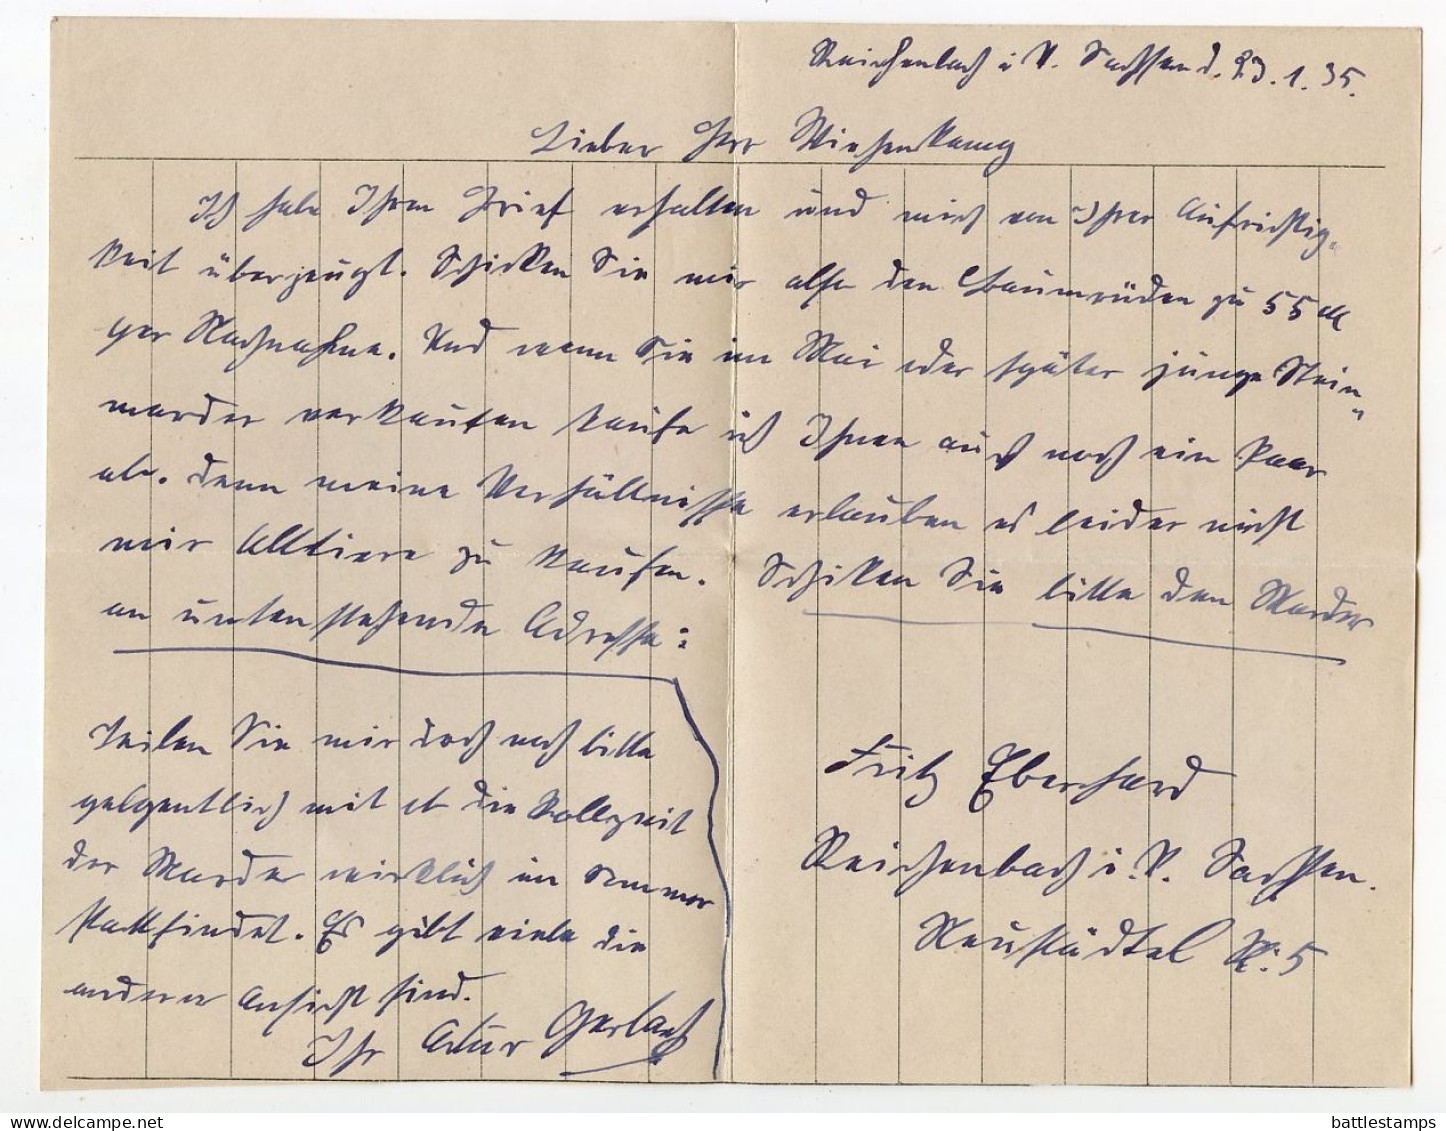 Reichenbach i. V. Sachsen d. 23.1.35.
Lieber Herr Wiesenkamp
Ich habe Ihren Brief erhalten und mich von Ihrer Aufrichtig-
keit überzeugt. Schicken Sie mir also den Baumrüden zu 55 M
per Nachnahme. Und wenn Sie im Mai oder später junge Stein"
marder verkaufen kaufe ich Ihnen auch noch ein Paar
ab. Denn meine Verhältnisse erlauben es leider nicht
mir Alttiere zu kaufen. Schiken Sie bitte den Marder
an untenstehende Adresse:
Teilen Sie mir doch noch bitte
gelgentlich mit ob die Rollzeit
der Marder wirklich im Sommer
stattfindet. Es gibt viele die
anderer Ansicht sind.
Ihr Artur Gerlach
Fritz Eberhard
Reichenbach i. V. Sachsen.
Neustädtel Nr. 5
battlestamps